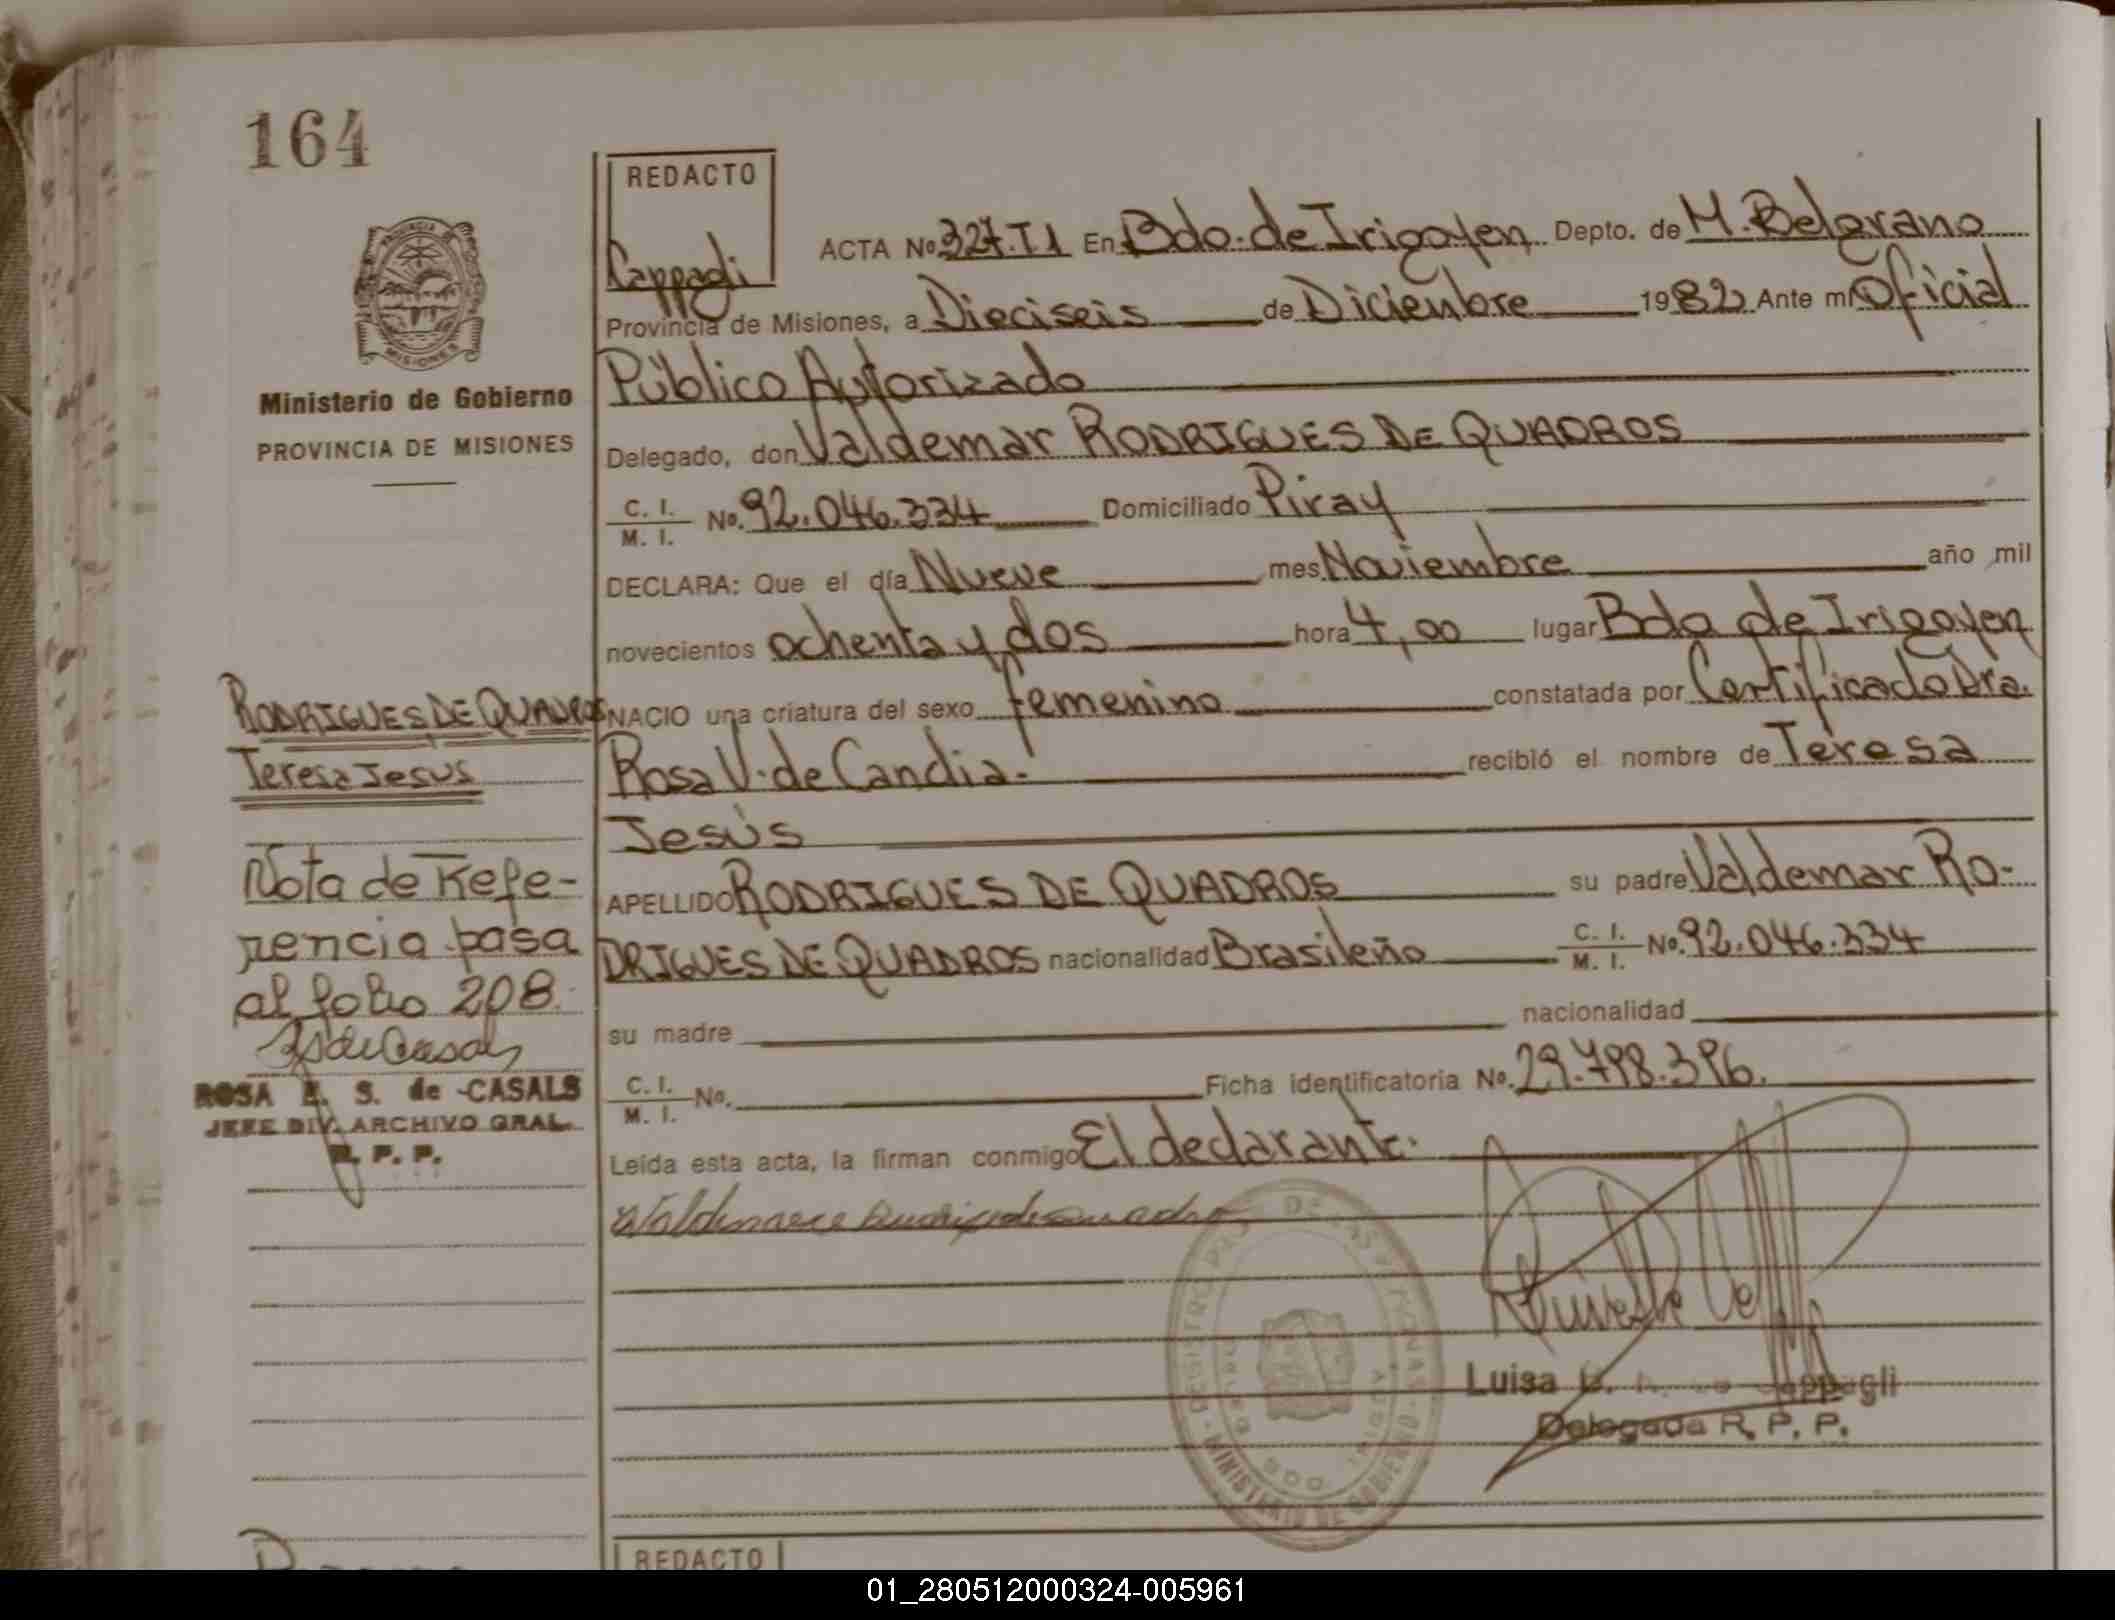 164
REDACTO
Cappagli
PROVINCIA DE
MISIONES
Ministerio de Gobierno
PROVINCIA DE MISIONES
ACTA No. 327.T1 En Bdo. de Irigoyen Depto. de M. Belgrano
Provincia de Misiones, a Dieciseis de Diciembre 1982 Ante mi Oficial
Público Autorizado
Delegado, don Valdemar RODRIGUES DE QUADROS
C. I.
M. I. No. 92.046.334 Domiciliado Piray
DECLARA: Que el día Nueve mes Noviembre año mil
novecientos ochenta y dos hora 4,00 lugar Bdo de Irigoyen
NACIO una criatura del sexo femenino constatada por Certificado Dra.
Rosa V. de Candia. recibió el nombre de Teresa
Jesús
APELLIDO RODRIGUES DE QUADROS su padre Valdemar RO-
DRIGUES DE QUADROS nacionalidad Brasileño C. I. M. I. No. 92.046.334
su madre nacionalidad
C. I.
M. I. No. Ficha identificatoria No. 29.798.396.
Leída esta acta, la firman conmigo El declarante.
RODRIGUES DE QUADROS
Teresa Jesus
Nota de Refe-
rencia pasa
al folio 208.
ROSA E. S. de CASALS
JEFE DIV. ARCHIVO GRAL.
R. P. P.
MINISTERIO DE GOBIERNO
Luisa
Cappagli
Delegada R. P. P.
REDACTO
01_280512000324-005961